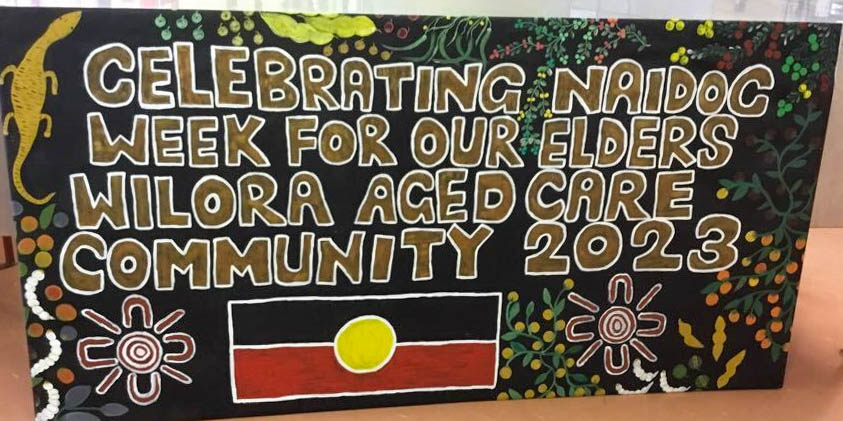 CELEBRATING NAIDOC
WEEK FOR OUR ELDERS
WILORA AGED CARE
COMMUNITY 2023